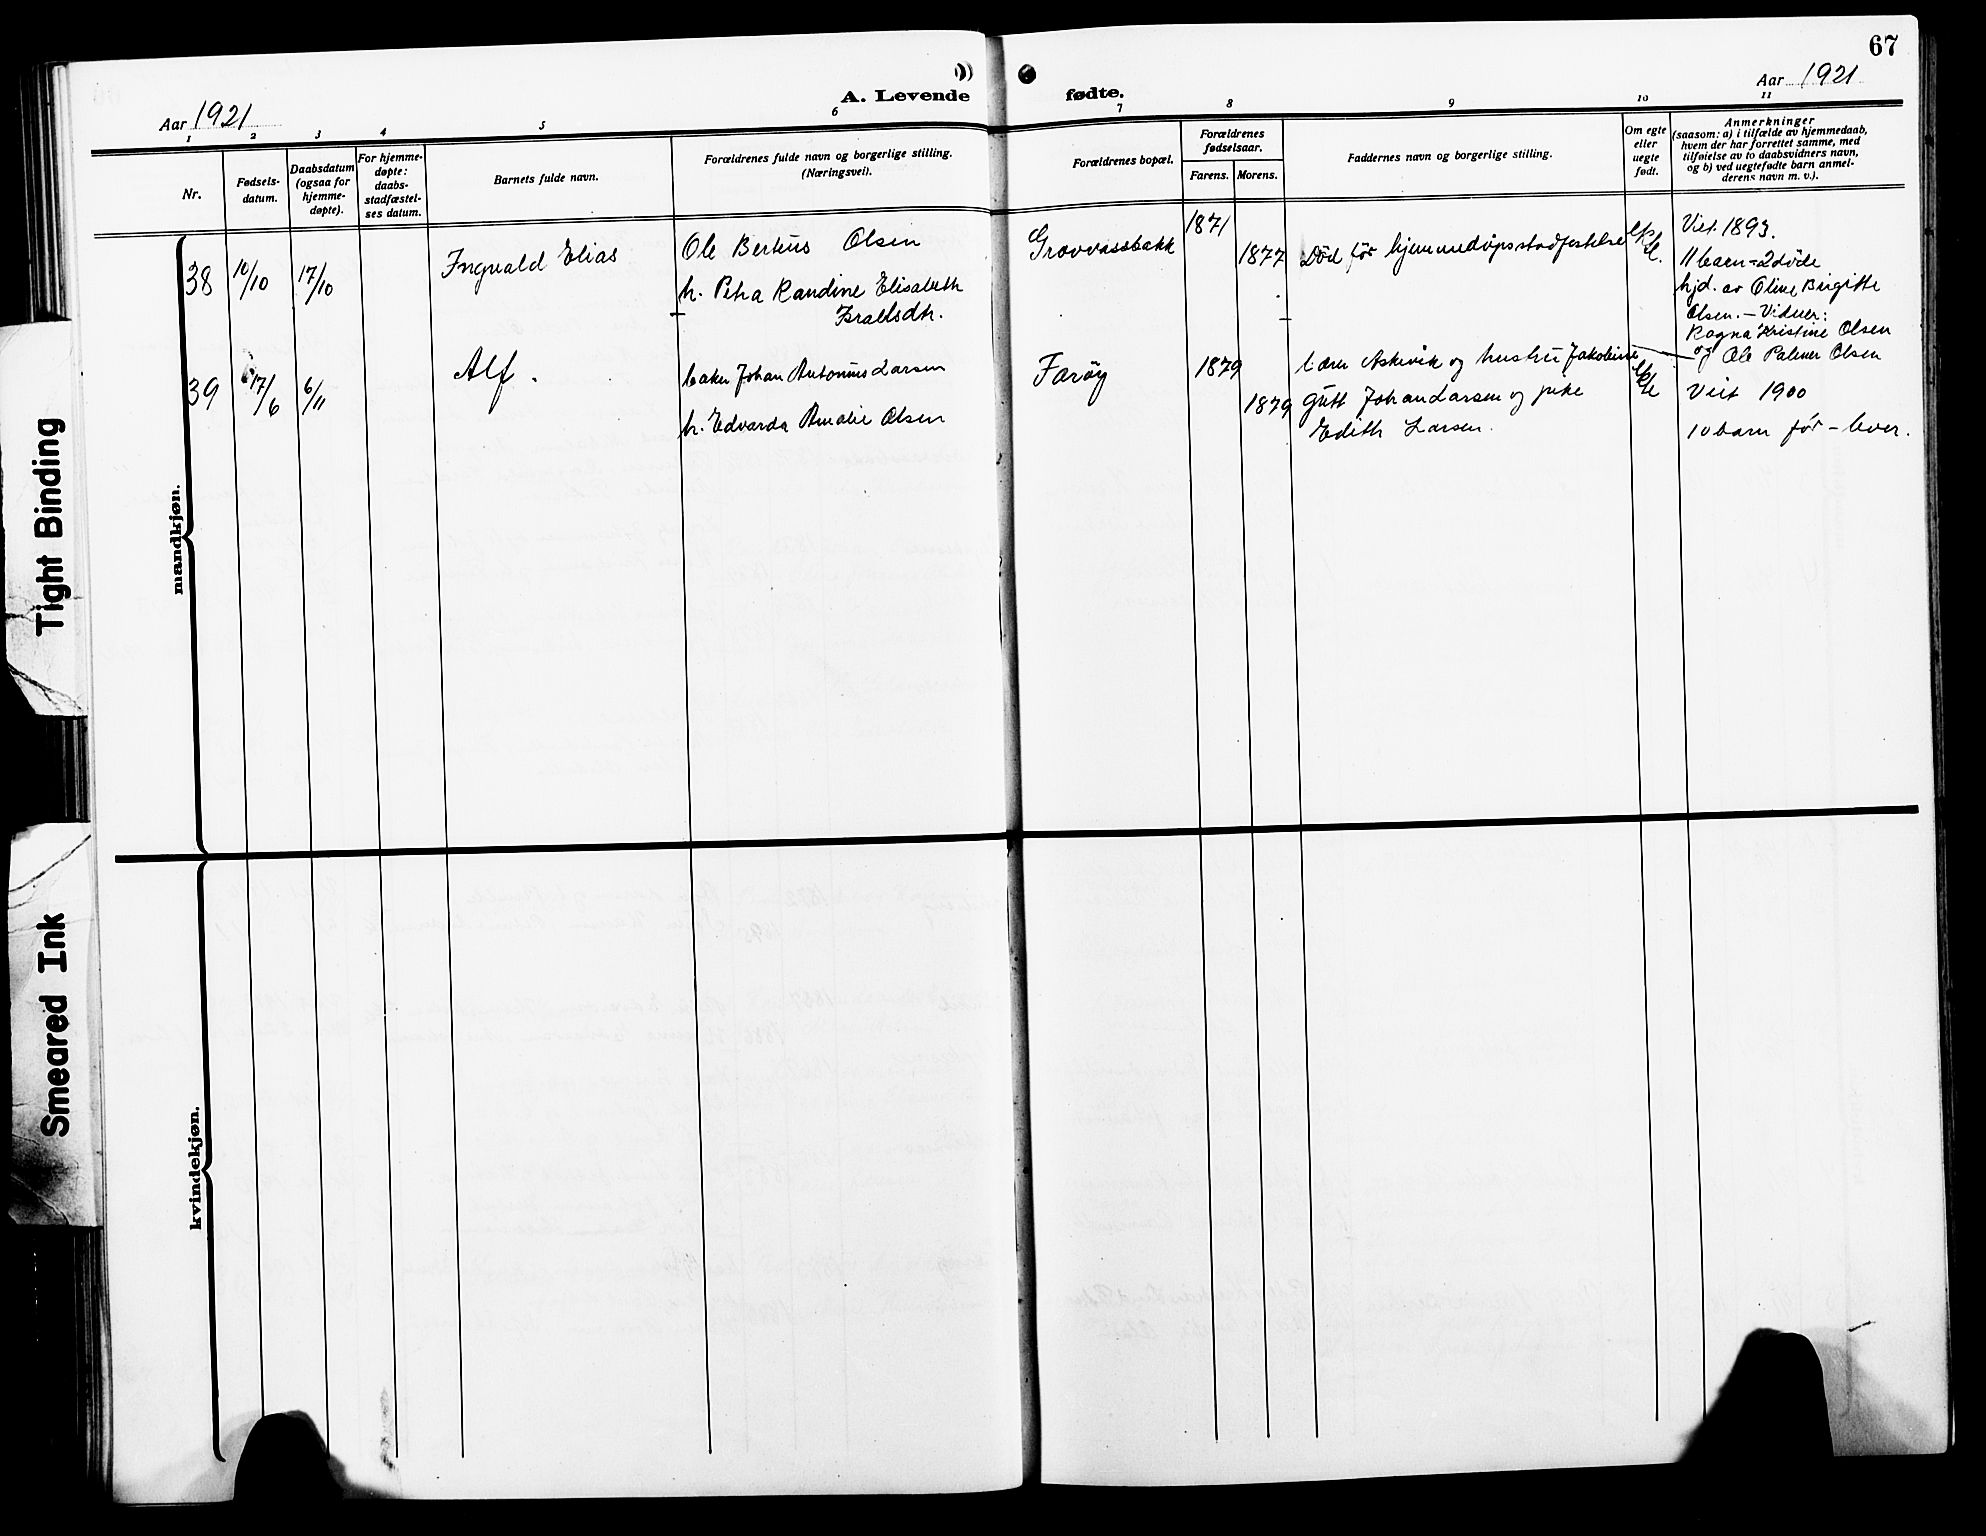 67
Aar 1921
A. Levende fødte.
Aar 1921
1 2 3 4 5 6 7 8 9 10 11
Nr.
Fødsels-
datum.
Daabsdatum
(ogsaa for
hjemme-
døpte).
For hjemme-
døpte:
daabs-
stadfæstel-
ses datum.
Barnets fulde navn.
Forældrenes fulde navn og borgerlige stilling.
(Næringsvei).
Forældrenes bopæl.
Forældrenes
fødselsaar.
Farens. Morens.
Faddernes navn og borgerlige stilling.
Om egte
eller
uegte
født.
Anmerkninger
(saasom: a) i tilfælde av hjemmedaab,
hvem der har forrettet samme, med
tilføielse av to daabsvidners navn,
og b) ved uegtefødte barn anmel-
derens navn m. v.).
mandkjøn.
38
10/10
17/10
Ingvald Elias
Ole Berteus Olsen
h. Petra Randine Elisabeth
Israelsdtr.
Grovvassbakk
1871
1877
Død før hjemmedøpsstadfestelse
ekte.
Viet 1893.
11 barn - 2 døde
hjd. av Oline Birgitte
Olsen. - Vidner:
Ragna Kristine Olsen
og Ole Palmer Olsen
39
17/6
6/11
Alf.
baker Johan Antonius Larsen
h. Edvarda Amalie Olsen
Farøy
1879
1879
lærer Askevik og hustru Jakobine
gutt Johan Larsen og pike
Edith Larsen.
ekte
Viet 1900
10 barn før - lever.
kvindekjøn.
Tight Binding
Smeared Ink